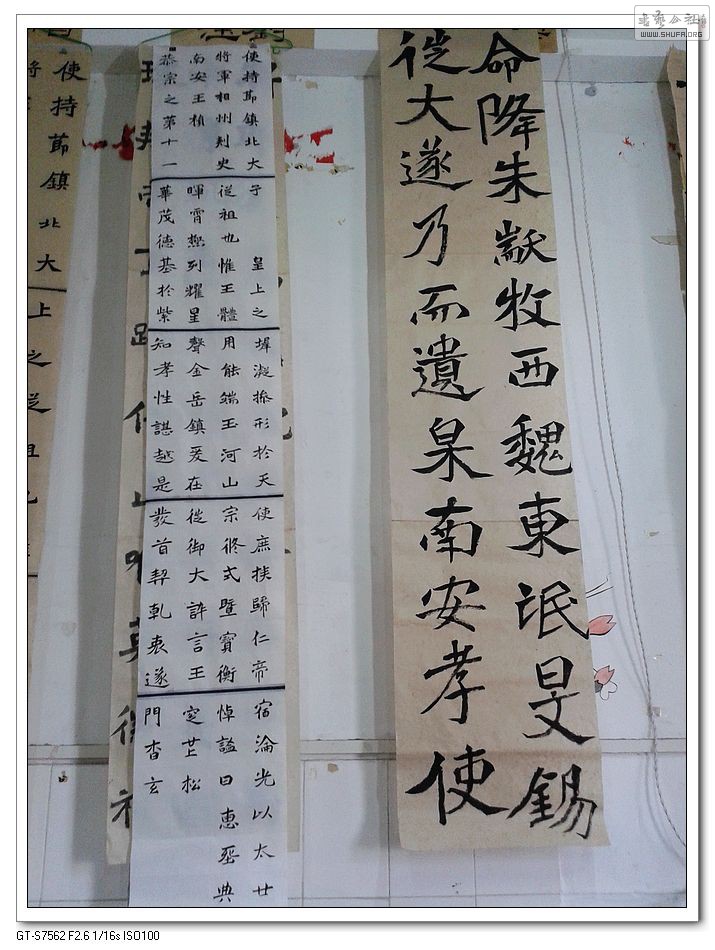 命降朱獻牧西魏東氓旻錫
從大遂乃而遺杲南安孝使
使持節鎮北大
將軍相州刾史
南安王楨
恭宗之第十一
子 皇上之
從祖也惟王體
暉霄極列耀星
華茂德基於紫
墀凝操形於天
用能端玉河山
聲金岳鎮爰在
知孝性諶越是
使庶族歸仁帝
宗修式暨寶衡
從御大許言王
發首契乹衷遂
宿淪光以太廿
悼謚曰惠 典
定芒松
門杳玄
使持節鎮北大
上之從祖也
GT-S7562 F2.6 1/16s ISO100
WWW.SHUFA.ORG